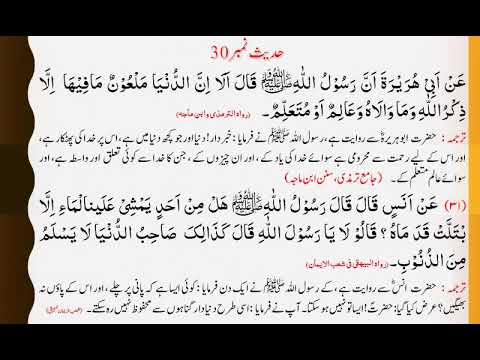 حدیث نمبر 30
عَنْ اَبِیْ هُرَیْرَةَ اَنَّ رَسُوْلُ اللهِ ﷺ قَالَ اَلَا اِنَّ الدُّنْیَا مَلْعُوْنٌ مَافِیْهَا اِلَّا
ذِکْرُ اللهِ وَمَا وَالَاهُ وَعَالِمٌ اَوْ مُتَعَلِّمٌ۔ (رواہ الترمذی وابن ماجہ)
ترجمہ: حضرت ابوہریرہؓ سے روایت ہے، رسول اللہ ﷺ نے فرمایا: خبردار! دنیا اور جو کچھ دنیا میں ہے، اس پر خدا کی پھٹکار ہے،
اور اس کے لیے رحمت سے محرومی ہے سوائے خدا کی یاد کے، اور ان چیزوں کے، جن کا خدا سے کوئی تعلق اور واسطہ ہے، اور
سوائے عالم متعلم کے۔ (جامع ترمذی، سنن ابن ماجہ)
(۳۱) عَنْ اَنَسٍ قَالَ قَالَ رَسُوْلُ اللهِ ﷺ هَلْ مِنْ اَحَدٍ یَمْشِیْ عَلَیْنَالْمَاءِ اِلَّا
بْتَلَّتْ قَدَ مَاهُ؟ قَالُوْ لَا یَا رَسُوْلَ اللهِ قَالَ کَذَالِکَ صَاحِبُ الدُّنْیَا لَا یَسْلَمُ
مِنَ الذُّنُوْبِ۔ (رواہ البیهقی فی شعب الایمان)
ترجمہ: حضرت انسؓ سے روایت ہے، کہ رسول اللہ ﷺ نے ایک دن فرمایا: کوئی ایسا ہے کہ پانی پر چلے، اور اس کے پاؤں نہ
بھیگیں؟ عرض کیا گیا: حضرت! ایسا تو نہیں ہو سکتا۔ آپ نے فرمایا: اسی طرح دنیادار گناہوں سے محفوظ نہیں رہ سکتے۔